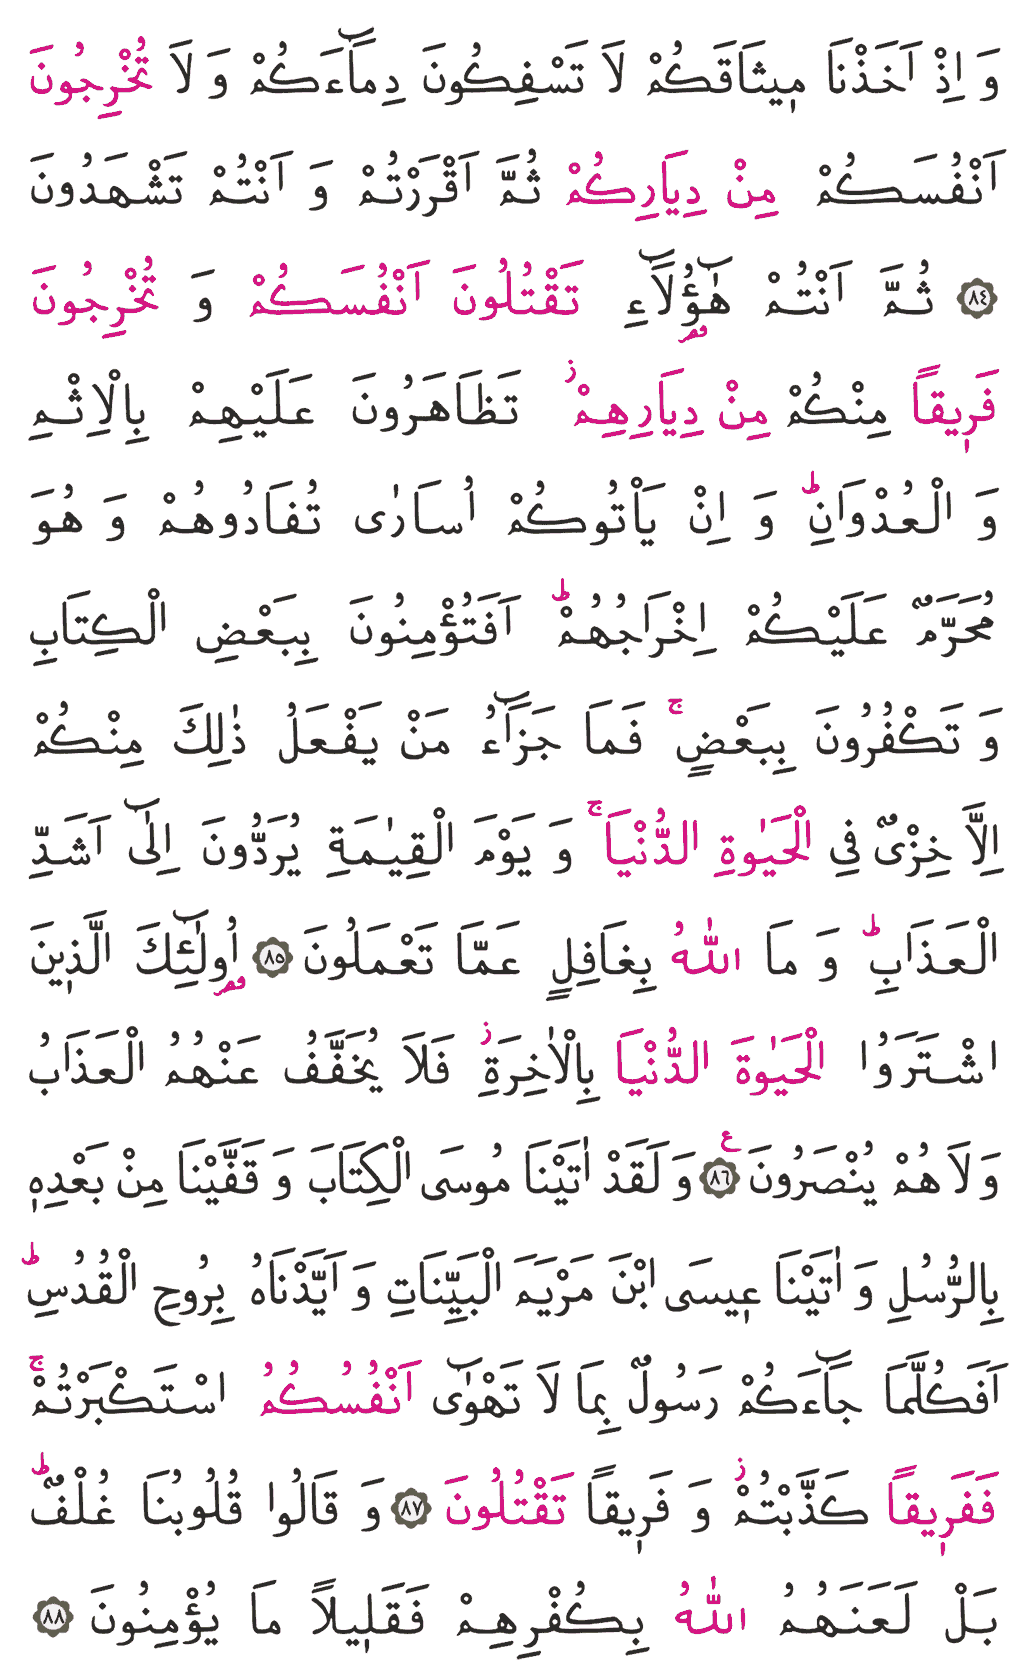 وَ اِذْ اَخَذْنَا مٖيثَاقَكُمْ لَا تَسْفِكُونَ دِمَٓاءَكُمْ وَ لَا تُخْرِجُونَ
اَنْفُسَكُمْ مِنْ دِيَارِكُمْ ثُمَّ اَقْرَرْتُمْ وَ اَنْتُمْ تَشْهَدُونَ
﴿٨٤﴾ ثُمَّ اَنْتُمْ هٰٓؤُلَٓاءِ تَقْتُلُونَ اَنْفُسَكُمْ وَ تُخْرِجُونَ
فَرٖيقًا مِنْكُمْ مِنْ دِيَارِهِمْؗ تَظَاهَرُونَ عَلَيْهِمْ بِالْاِثْمِ
وَ الْعُدْوَانِؕ وَ اِنْ يَاْتُوكُمْ اُسَارٰى تُفَادُوهُمْ وَ هُوَ
مُحَرَّمٌ عَلَيْكُمْ اِخْرَاجُهُمْؕ اَفَتُؤْمِنُونَ بِبَعْضِ الْكِتَابِ
وَ تَكْفُرُونَ بِبَعْضٍۚ فَمَا جَزَٓاءُ مَنْ يَفْعَلُ ذٰلِكَ مِنْكُمْ
اِلَّا خِزْىٌ فِى الْحَيٰوةِ الدُّنْيَاۚ وَ يَوْمَ الْقِيٰمَةِ يُرَدُّونَ اِلٰٓى اَشَدِّ
الْعَذَابِؕ وَ مَا اللّٰهُ بِغَافِلٍ عَمَّا تَعْمَلُونَ ﴿٨٥﴾ اُولٰٓئِكَ الَّذٖينَ
اشْتَرَوُا الْحَيٰوةَ الدُّنْيَا بِالْاٰخِرَةِؗ فَلَا يُخَفَّفُ عَنْهُمُ الْعَذَابُ
وَ لَا هُمْ يُنْصَرُونَ ﴿٨٦﴾ ع وَ لَقَدْ اٰتَيْنَا مُوسَى الْكِتَابَ وَ قَفَّيْنَا مِنْ بَعْدِهٖ
بِالرُّسُلِ وَ اٰتَيْنَا عٖيسَى ابْنَ مَرْيَمَ الْبَيِّنَاتِ وَ اَيَّدْنَاهُ بِرُوحِ الْقُدُسِؕ
اَفَكُلَّمَا جَٓاءَكُمْ رَسُولٌ بِمَا لَا تَهْوٰٓى اَنْفُسُكُمُ اسْتَكْبَرْتُمْۚ
فَفَرٖيقًا كَذَّبْتُمْؗ وَ فَرٖيقًا تَقْتُلُونَ ﴿٨٧﴾ وَ قَالُوا قُلُوبُنَا غُلْفٌؕ
بَلْ لَعَنَهُمُ اللّٰهُ بِكُفْرِهِمْ فَقَلٖيلًا مَا يُؤْمِنُونَ ﴿٨٨﴾